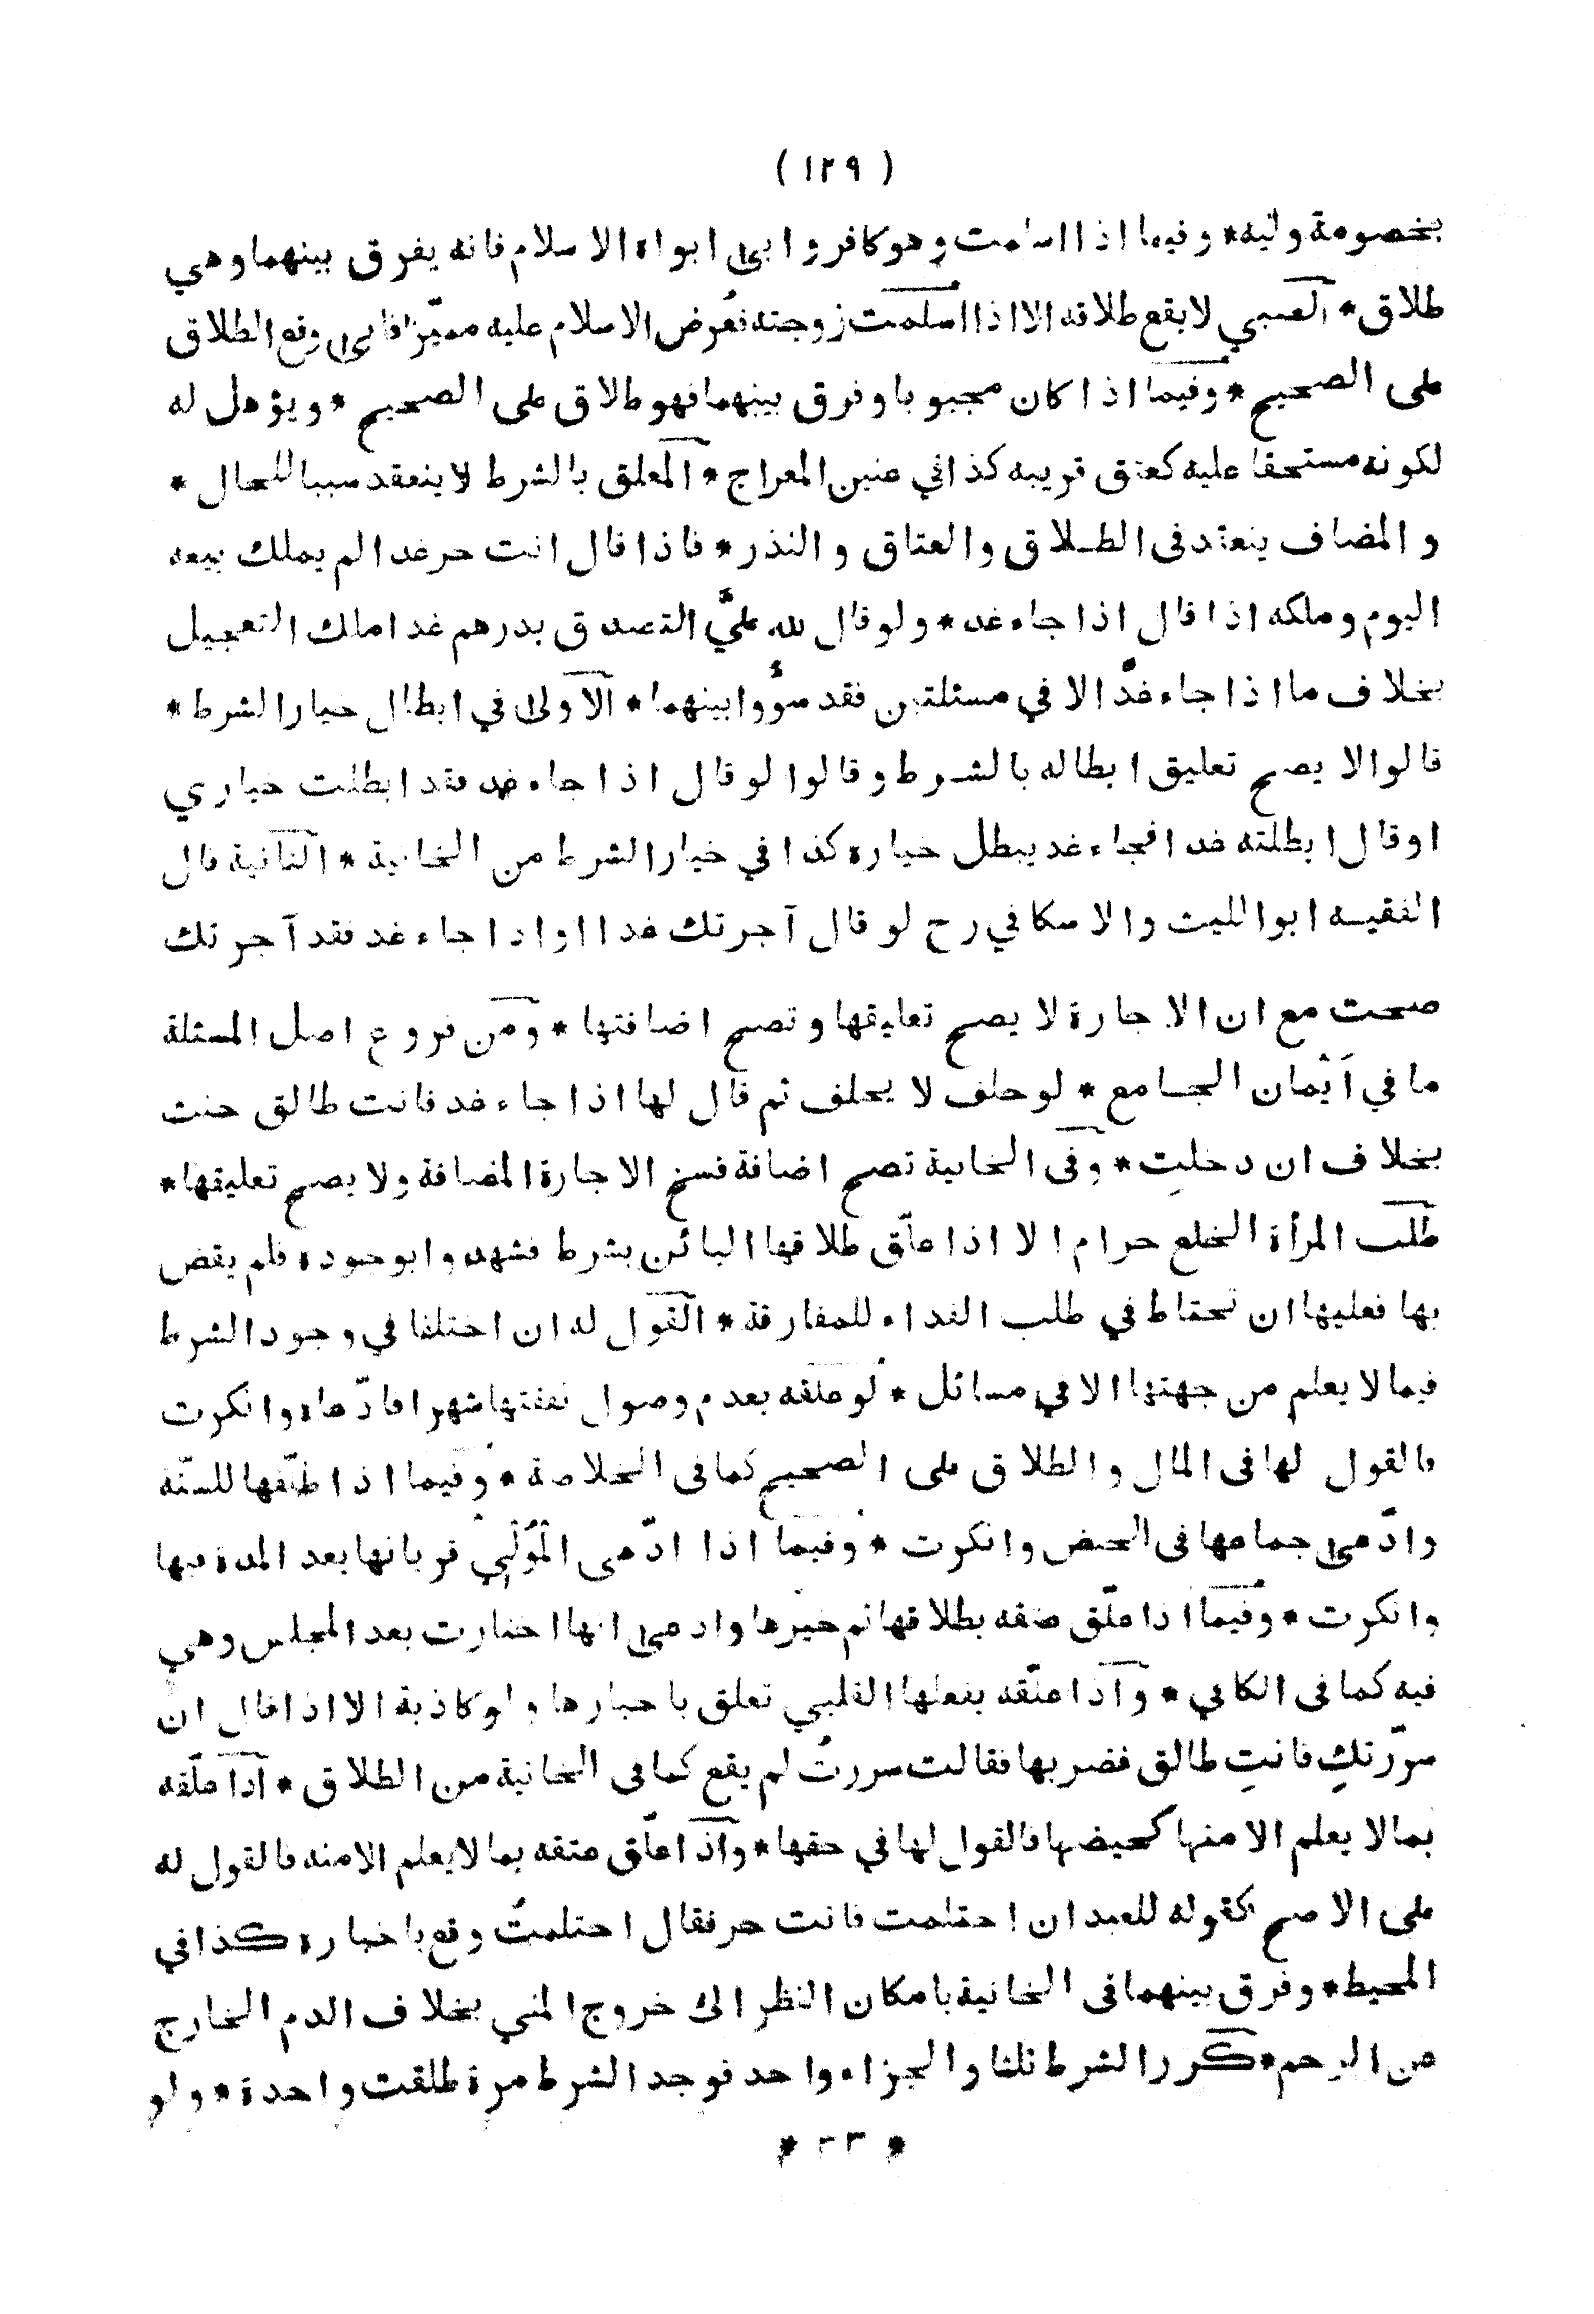 ( ١٢٩ )
بخصومة وليه * وفيما اذا اسلمت وهو كافر وابى ابواه الاسلام فانه يفرق بينهما وهي
طلاق * الصبي لا يقع طلاقه الا اذا اسلمت زوجته فعُرض الاسلام عليه مميّزا فابى وقع الطلاق
على الصحيح * وفيما اذا كان مجبوبا وفرق بينهما فهو طلاق على الصحيح * ويؤهل له
لكونه مستحقا عليه كعتق قريبه كذا في عنين المعراج * المعلق بالشرط لا ينعقد سببا للحال *
و المضاف ينعقد في الطـلاق والعتاق و النذر * فاذا قال انت حر غدا لم يملك بيعه
اليوم وملكه اذا قال اذا جاء غد * ولو قال لله عليَّ التصدق بدرهم غدا ملك التعجيل
بخلاف ما اذا جاء غدٌ الا في مسئلتين فقد سوَّوا بينهما * الاولى في ابطال خيار الشرط *
قالوا لا يصح تعليق ابطاله بالشـرط وقالوا لو قال اذا جاء غد فقد ابطلت خياري
او قال ابطلته غدا فجاء غد يبطل خياره كذا في خيار الشرط من الخانية * الثانية قال
الفقيـه ابو الليث والاسكافي رح لو قال آجرتك غدا او اذا جاء غد فقد آجرتك
صحت مع ان الاجارة لا يصح تعليقها وتصح اضافتها * ومن فروع اصل المسئلة
ما في اَيْمان الجـامع * لو حلف لا يحلف ثم قال لها اذا جاء غد فانت طالق حنث
بخلاف ان دخلتِ * وفى الخانية تصح اضافة فسخ الاجارة المضافة ولا يصح تعليقها *
طلب المرأة الخلع حرام الا اذا علّق طلاقها البائن بشرط فشهدوا بوجوده فلم يقض
بها فعليها ان تحتاط في طلب الفداء للمفارقة * القول له ان اختلفا في وجود الشرط
فيما لا يعلم من جهتها الا في مسائل * لو علقه بعدم وصول نفقتها شهرا فادّعاه وانكرت
فالقول لها فى المال والطلاق على الصحيح كما فى الخلاصة * وفيما اذا طلّقها للسنّة
وادّعى جماعها فى الحيض وانكرت * وفيما اذا ادّعى المُوْلِي قربانها بعد المدة فيها
وانكرت * وفيما اذا علّق عتقه بطلاقها ثم خيرها وادعى انها اختارت بعد المجلس وهي
فيه كما فى الكافي * واذا علّقه بفعلها القلبي تعلق باخبارها ولو كاذبة الا اذا قال ان
سرّرتكِ فانتِ طالق فضربها فقالت سررتُ لم يقع كما فى الخانية من الطلاق * اذا علّقه
بما لا يعلم الا منها كحيضها فالقول لها في حقها * واذا علّق عتقه بما لا يعلم الا منه فالقول له
على الاصح كقوله للعبد ان احتلمت فانت حر فقال احتلمتُ وقع باخباره كذا في
المحيط * وفرق بينهما فى الخانية بامكان النظر الى خروج المني بخلاف الدم الخارج
من الرحم * كرر الشرط ثلثا والجزاء واحد فوجد الشرط مرة طلقت واحدة * ولو
* ٣٣ *